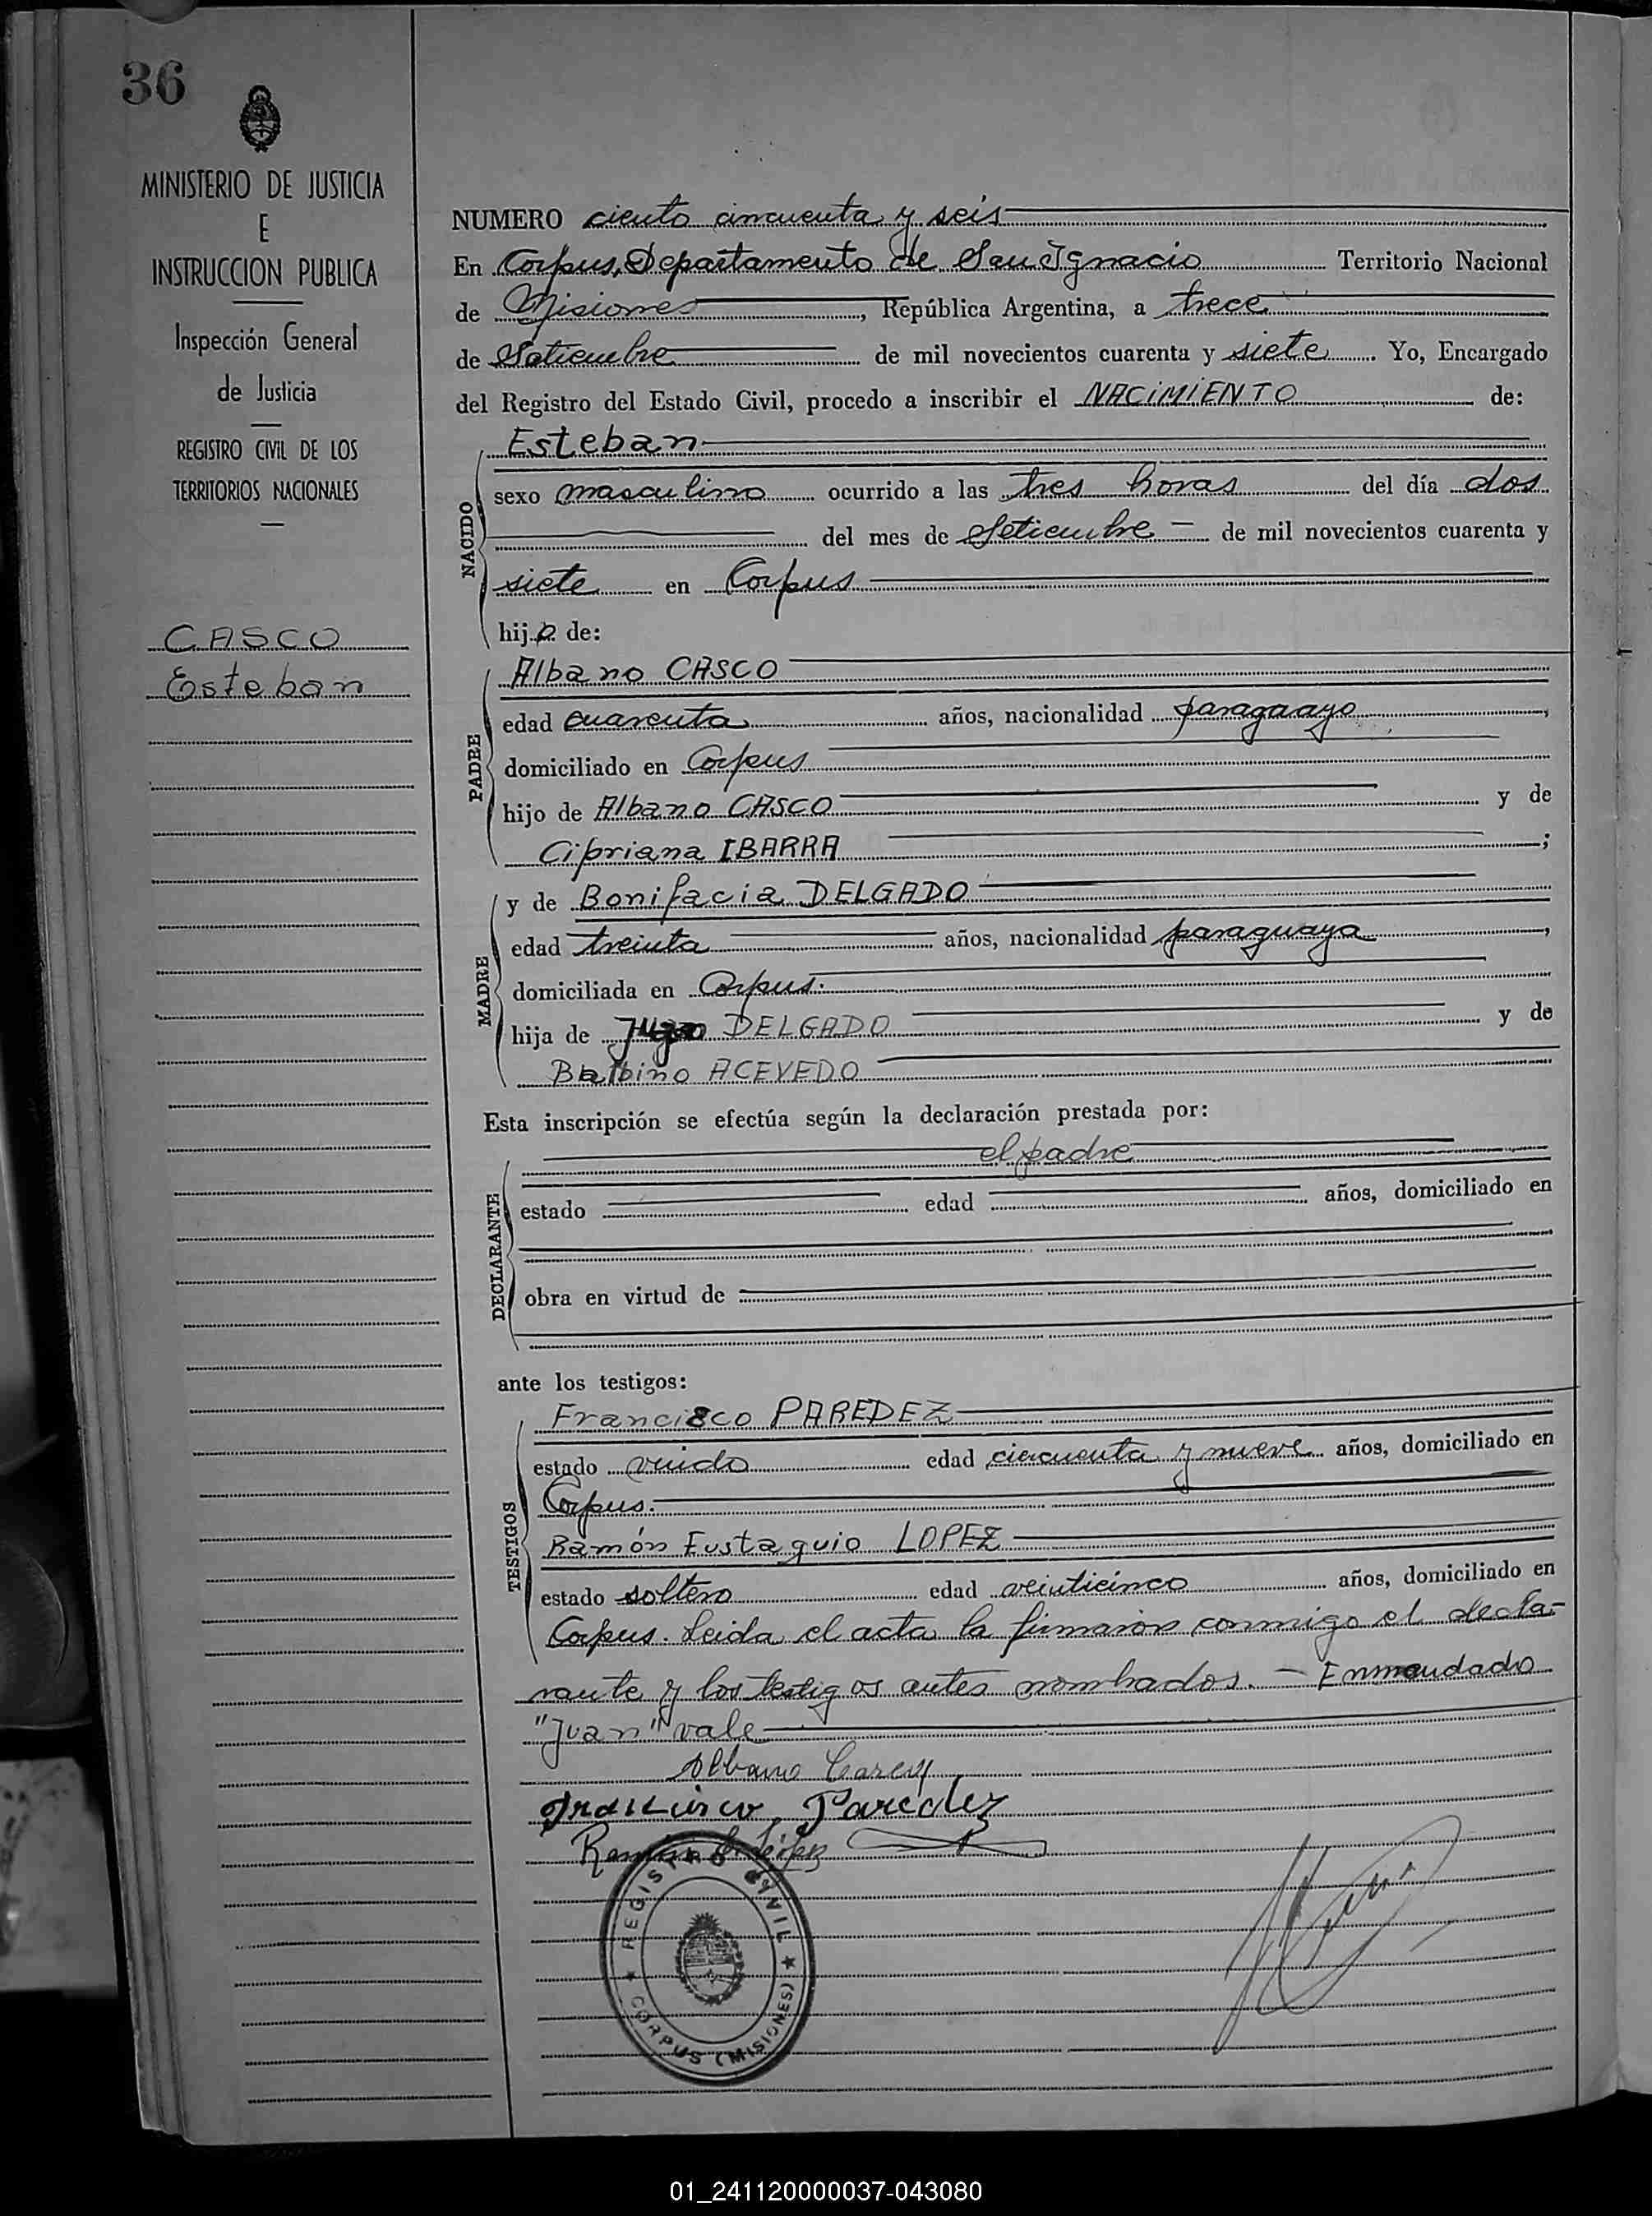 36
MINISTERIO DE JUSTICIA
E
INSTRUCCION PUBLICA
Inspección General
de Justicia
REGISTRO CIVIL DE LOS
TERRITORIOS NACIONALES
CASCO
Esteban
NUMERO ciento cincuenta y seis
En Corpus, Departamento de San Ignacio Territorio Nacional
de Misiones, República Argentina, a trece
de Setiembre de mil novecientos cuarenta y siete. Yo, Encargado
del Registro del Estado Civil, procedo a inscribir el NACIMIENTO de:
NACIDO
Esteban
sexo masculino ocurrido a las tres horas del día dos
del mes de Setiembre - de mil novecientos cuarenta y
siete en Corpus
hijo de:
PADRE
Albano CASCO
edad cuarenta años, nacionalidad paraguayo,
domiciliado en Corpus
hijo de Albano CASCO y de
Cipriana IBARRA;
MADRE
y de Bonifacia DELGADO
edad treinta años, nacionalidad paraguaya,
domiciliada en Corpus.
hija de Juan DELGADO y de
Balbino ACEVEDO
Esta inscripción se efectúa según la declaración prestada por:
DECLARANTE
el padre
estado edad años, domiciliado en
obra en virtud de
ante los testigos:
TESTIGOS
Francisco PAREDEZ
estado viudo edad cincuenta y nueve años, domiciliado en
Corpus.
Ramón Eustaquio LOPEZ
estado soltero edad veinticinco años, domiciliado en
Corpus. Leida el acta la firmaron conmigo el decla-
rante y los testigos antes nombrados. - Enmendado
"Juan" vale
Albano
Francisco Paredez
Ramón E. López
REGISTRO CIVIL
CORPUS (MISIONES)
01_241120000037-043080